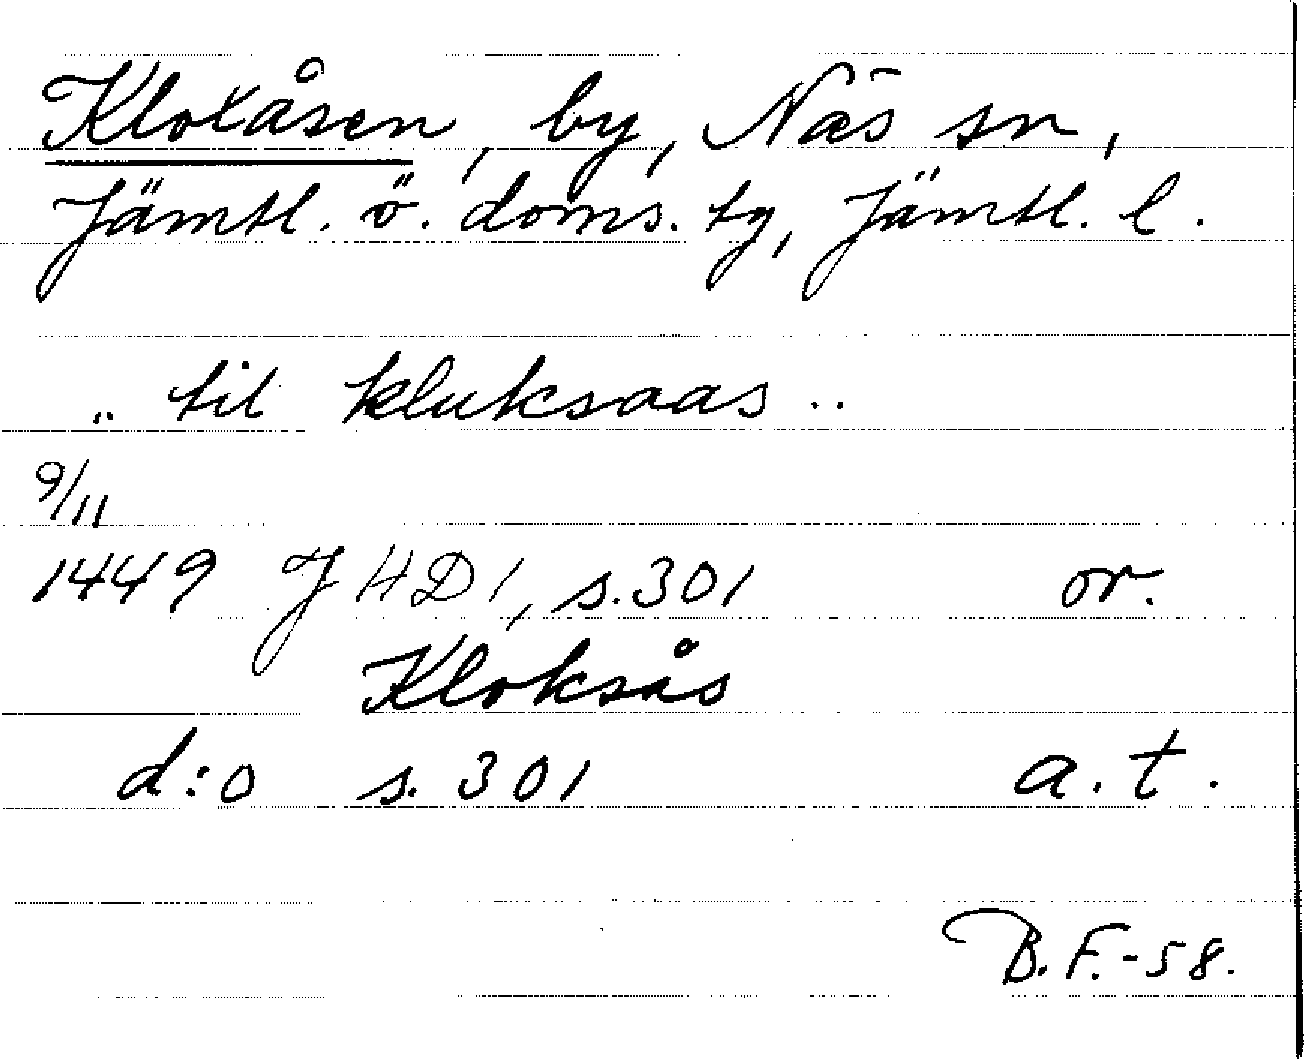 Kloxåsen, by, Näs sn,
Jämtl. ö. doms. tg, Jämtl. l.
.. til kluksaas ..
9/11
1449 JHD 1, s. 301 or.
Kloksås
d:o s. 301 a. t.
B. F. - 58.